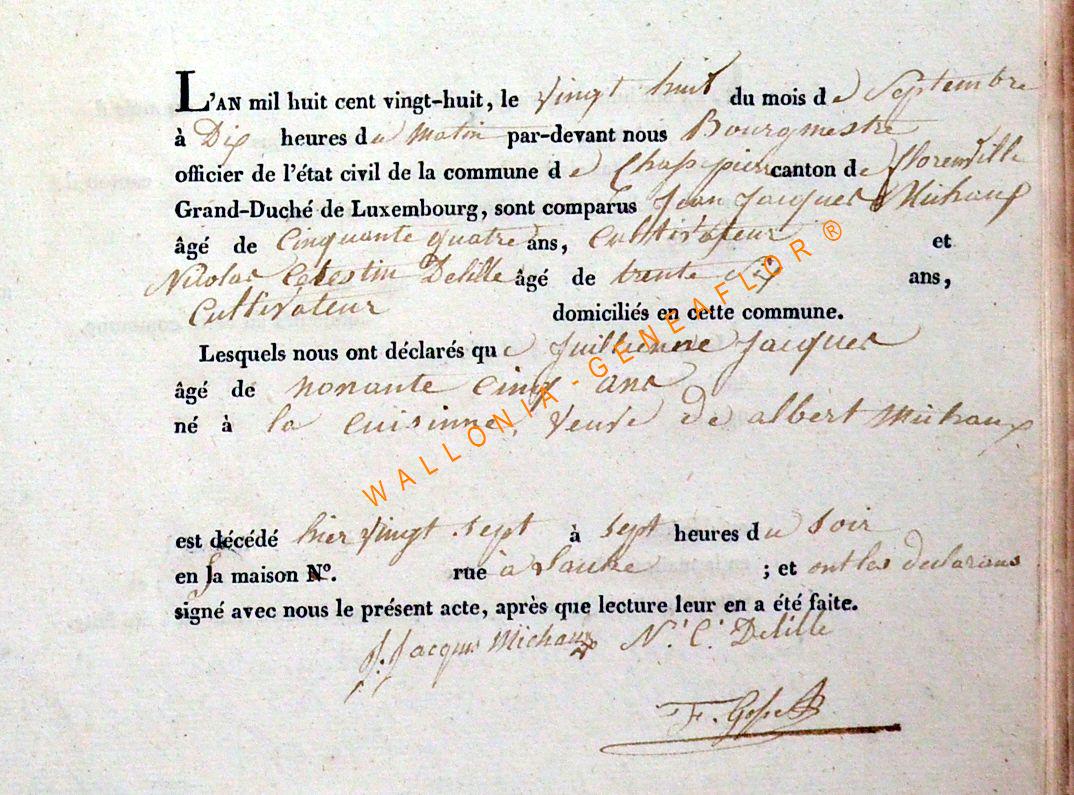 L'AN mil huit cent vingt-huit, le vingt huit du mois de Septembre
à Dix heures du matin par-devant nous Bourgmestre
officier de l'état civil de la commune de Chassepierre canton de florenville
Grand-Duché de Luxembourg, sont comparus Jean Jacques Michaux
âgé de Cinquante quatre ans, Cultivateur et
Nicolas Celestin Delille âgé de trente ans,
Cultivateur domiciliés en cette commune.
Lesquels nous ont déclarés que Juillienne Jacques
âgé de nonante cinq ans
né à la cuisinne, veuve de albert Michaux
est décédé hier vingt sept à sept heures du soir
en sa maison No. rue à ; et ont les declarans
signé avec nous le présent acte, après que lecture leur en a été faite.
J. Jacques Michaux N. C. Delille
WALLONIA-GENEAFLOR ®